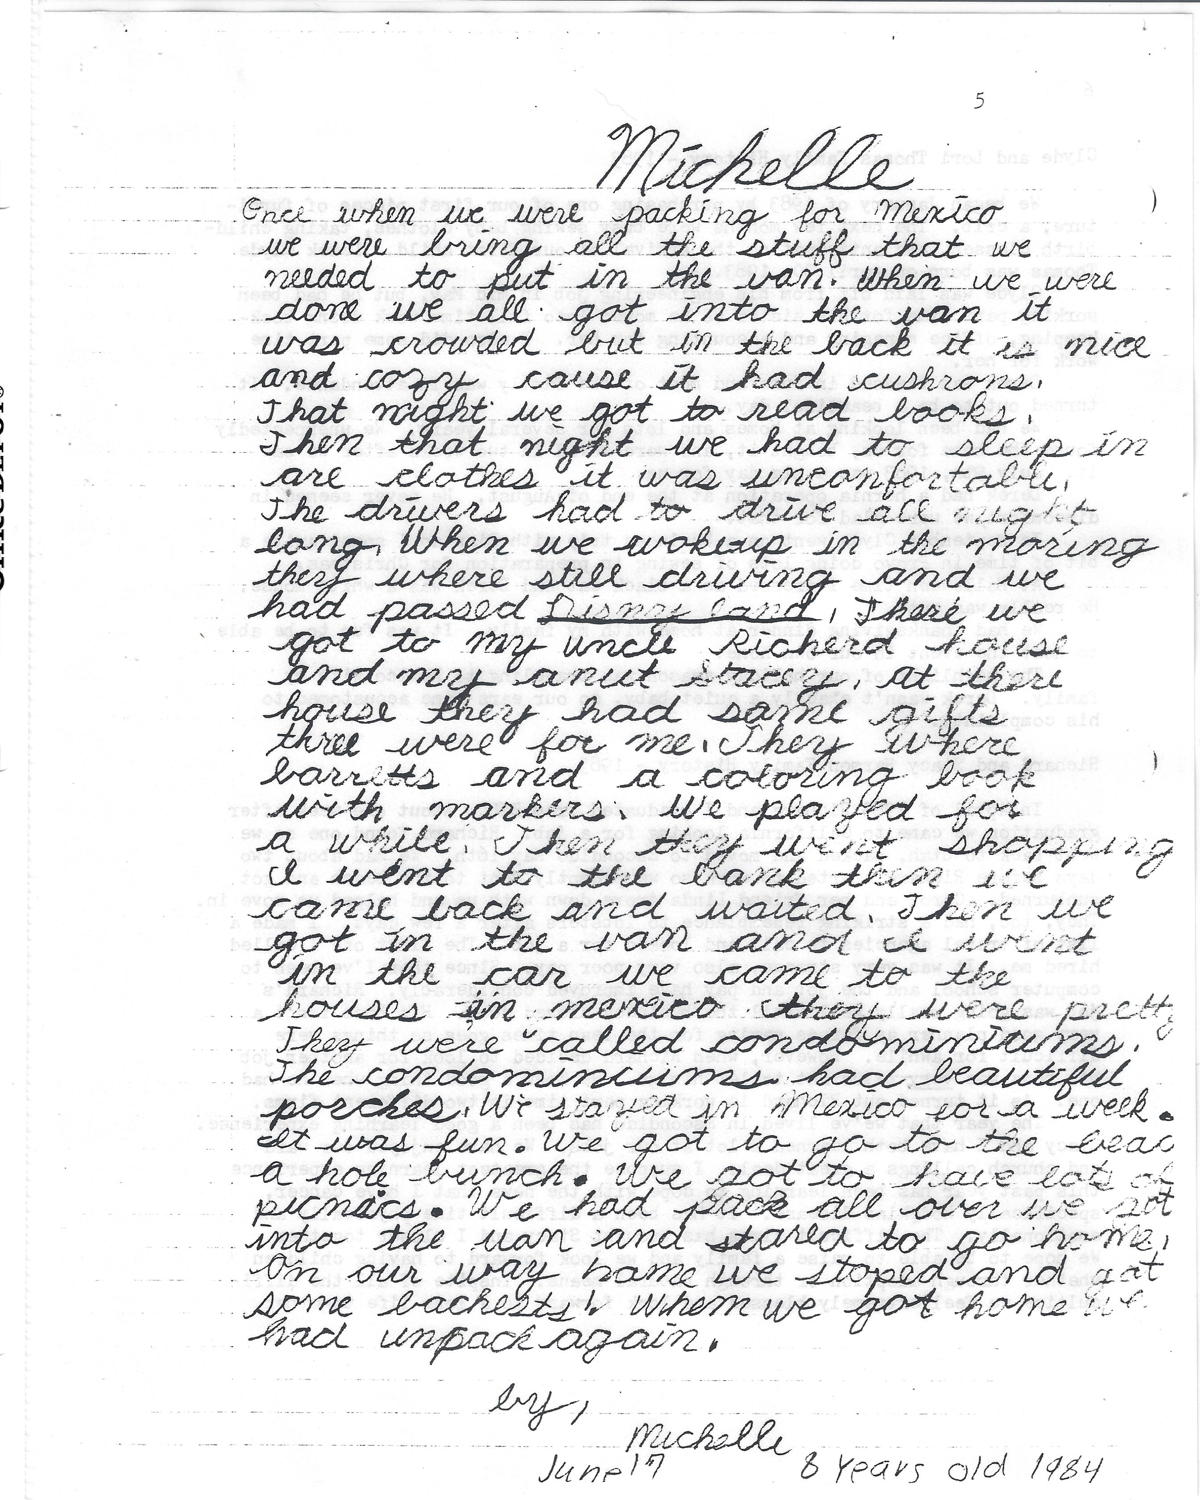 5
Michelle
Once when we were packing for Mexico
we were bring all the stuff that we
needed to put in the van. When we were
done we all got into the van it
was crowded but in the back it is nice
and cozy cause it had cushrons.
That night we got to read books.
Then that night we had to sleep in
are clothes it was unconfortable.
The drivers had to drive all night
long. When we woke up in the moring
they where still driving and we
had passed Disny land. There we
got to my uncle Richerd house
and my anut Stacey. at there
house they had some gifts
three were for me. They where
barretts and a coloring book
with markers. We played for
a while. Then they went shopping
I went to the bank then we
came back and waited. Then we
got in the van and I went
in the car we came to the
houses in mexico they were pretty
They were called condominiums.
The condominiums had beautiful
porches. We stayed in Mexico for a week.
It was fun. We got to go to the beac
a hole bunch. We got to have lots of
picnics. We had pack all over we got
into the van and stared to go home.
On our way home we stoped and got
some . When we got home we
had unpack again.
by,
Michelle
June 17 8 Years old 1984